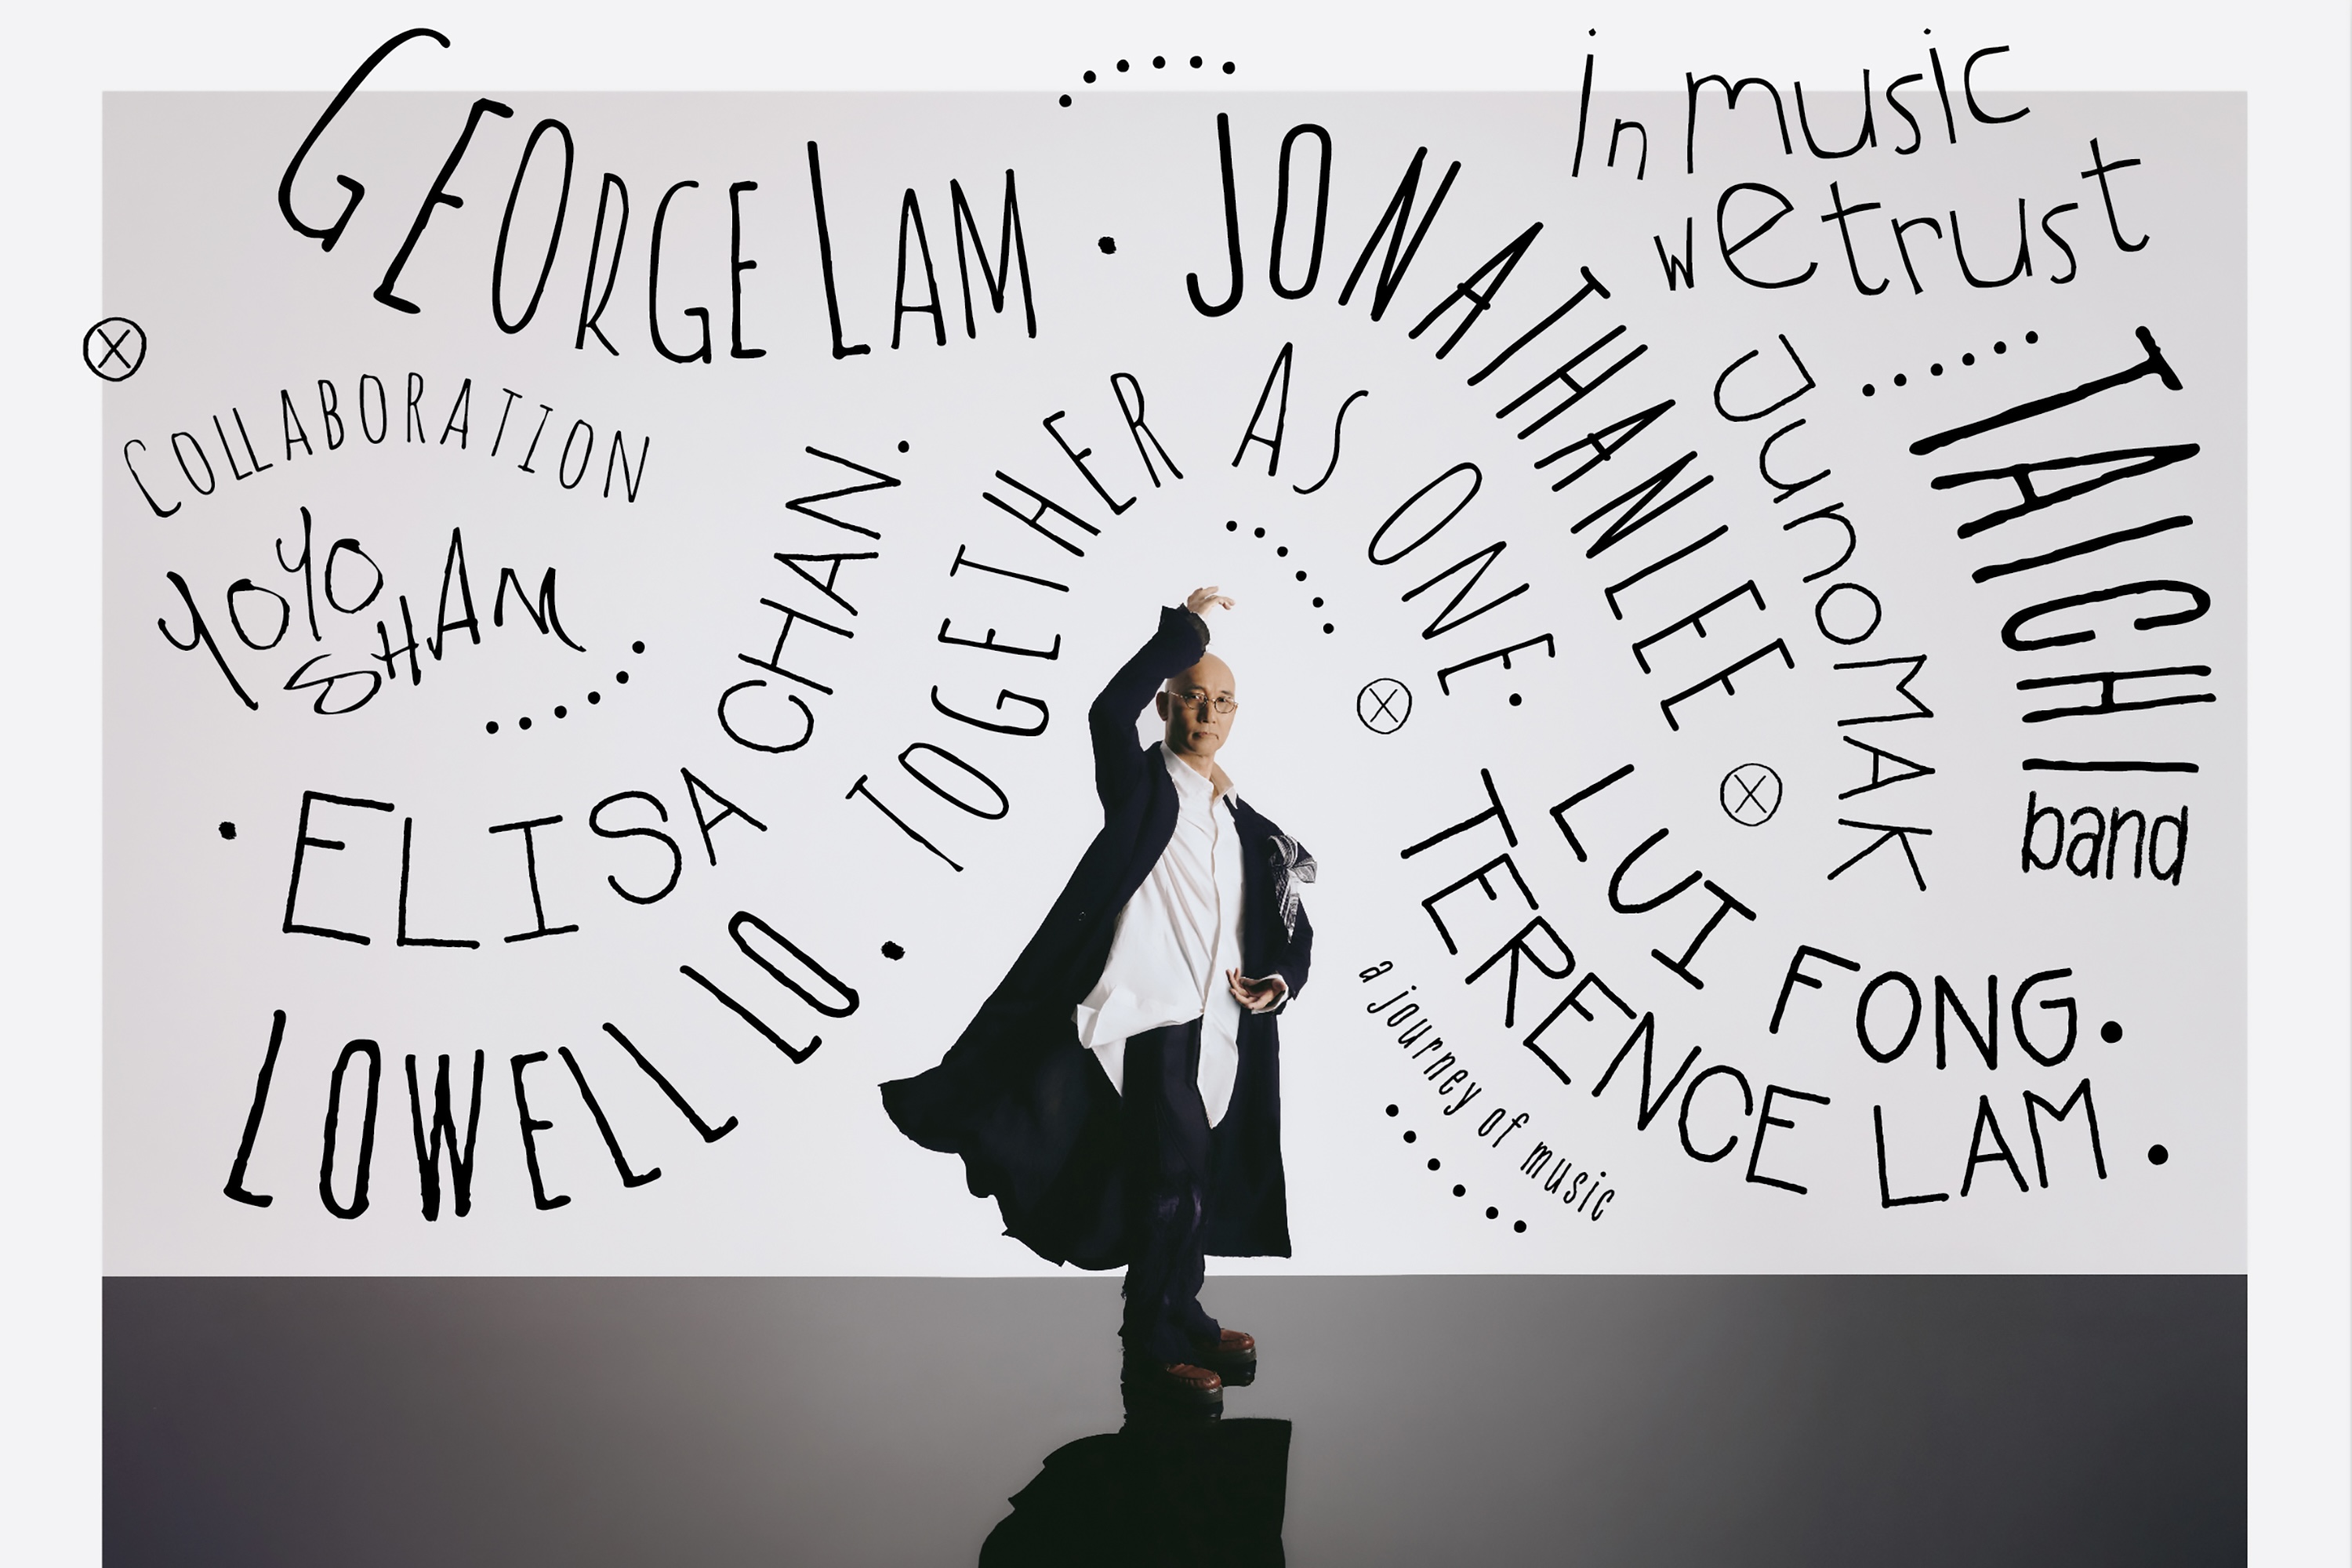 In music
we trust
GEORGE LAM
JONATHAN LEE
COLLABORATION
YOYO
SHAM
ELISA CHAN.
TOGETHER AS ONE.
Juno MAK
TAICHI band
LOWELL LO
LUI FONG.
TERENCE LAM.
a journey of music